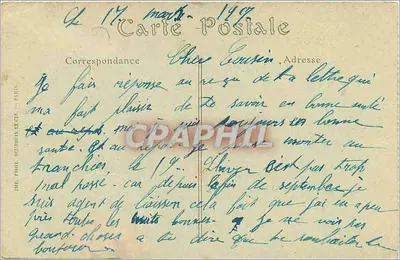 Le 17 mars 1917
Carte Postale
Correspondance Cher Cousin, Adresse
Je fais réponse au reçu de ta lettre qui
m'a fait plaisir de te savoir en bonne santé
au repos moi je suis toujours en bonne
santé et au repos je vais monter au
tranchées, le 19 l'hiver c'est pas trop
mal passé car depuis la fin de septembre je
suis agent de liaison cela fait que j'ai à peu
près toutes les nuits bonnes je ne vois pas
grand choses a te dire que de souhaiter le
bonjour
CPAPHIL
IMP. PHOT. NEURDEIN ET CIE. - PARIS